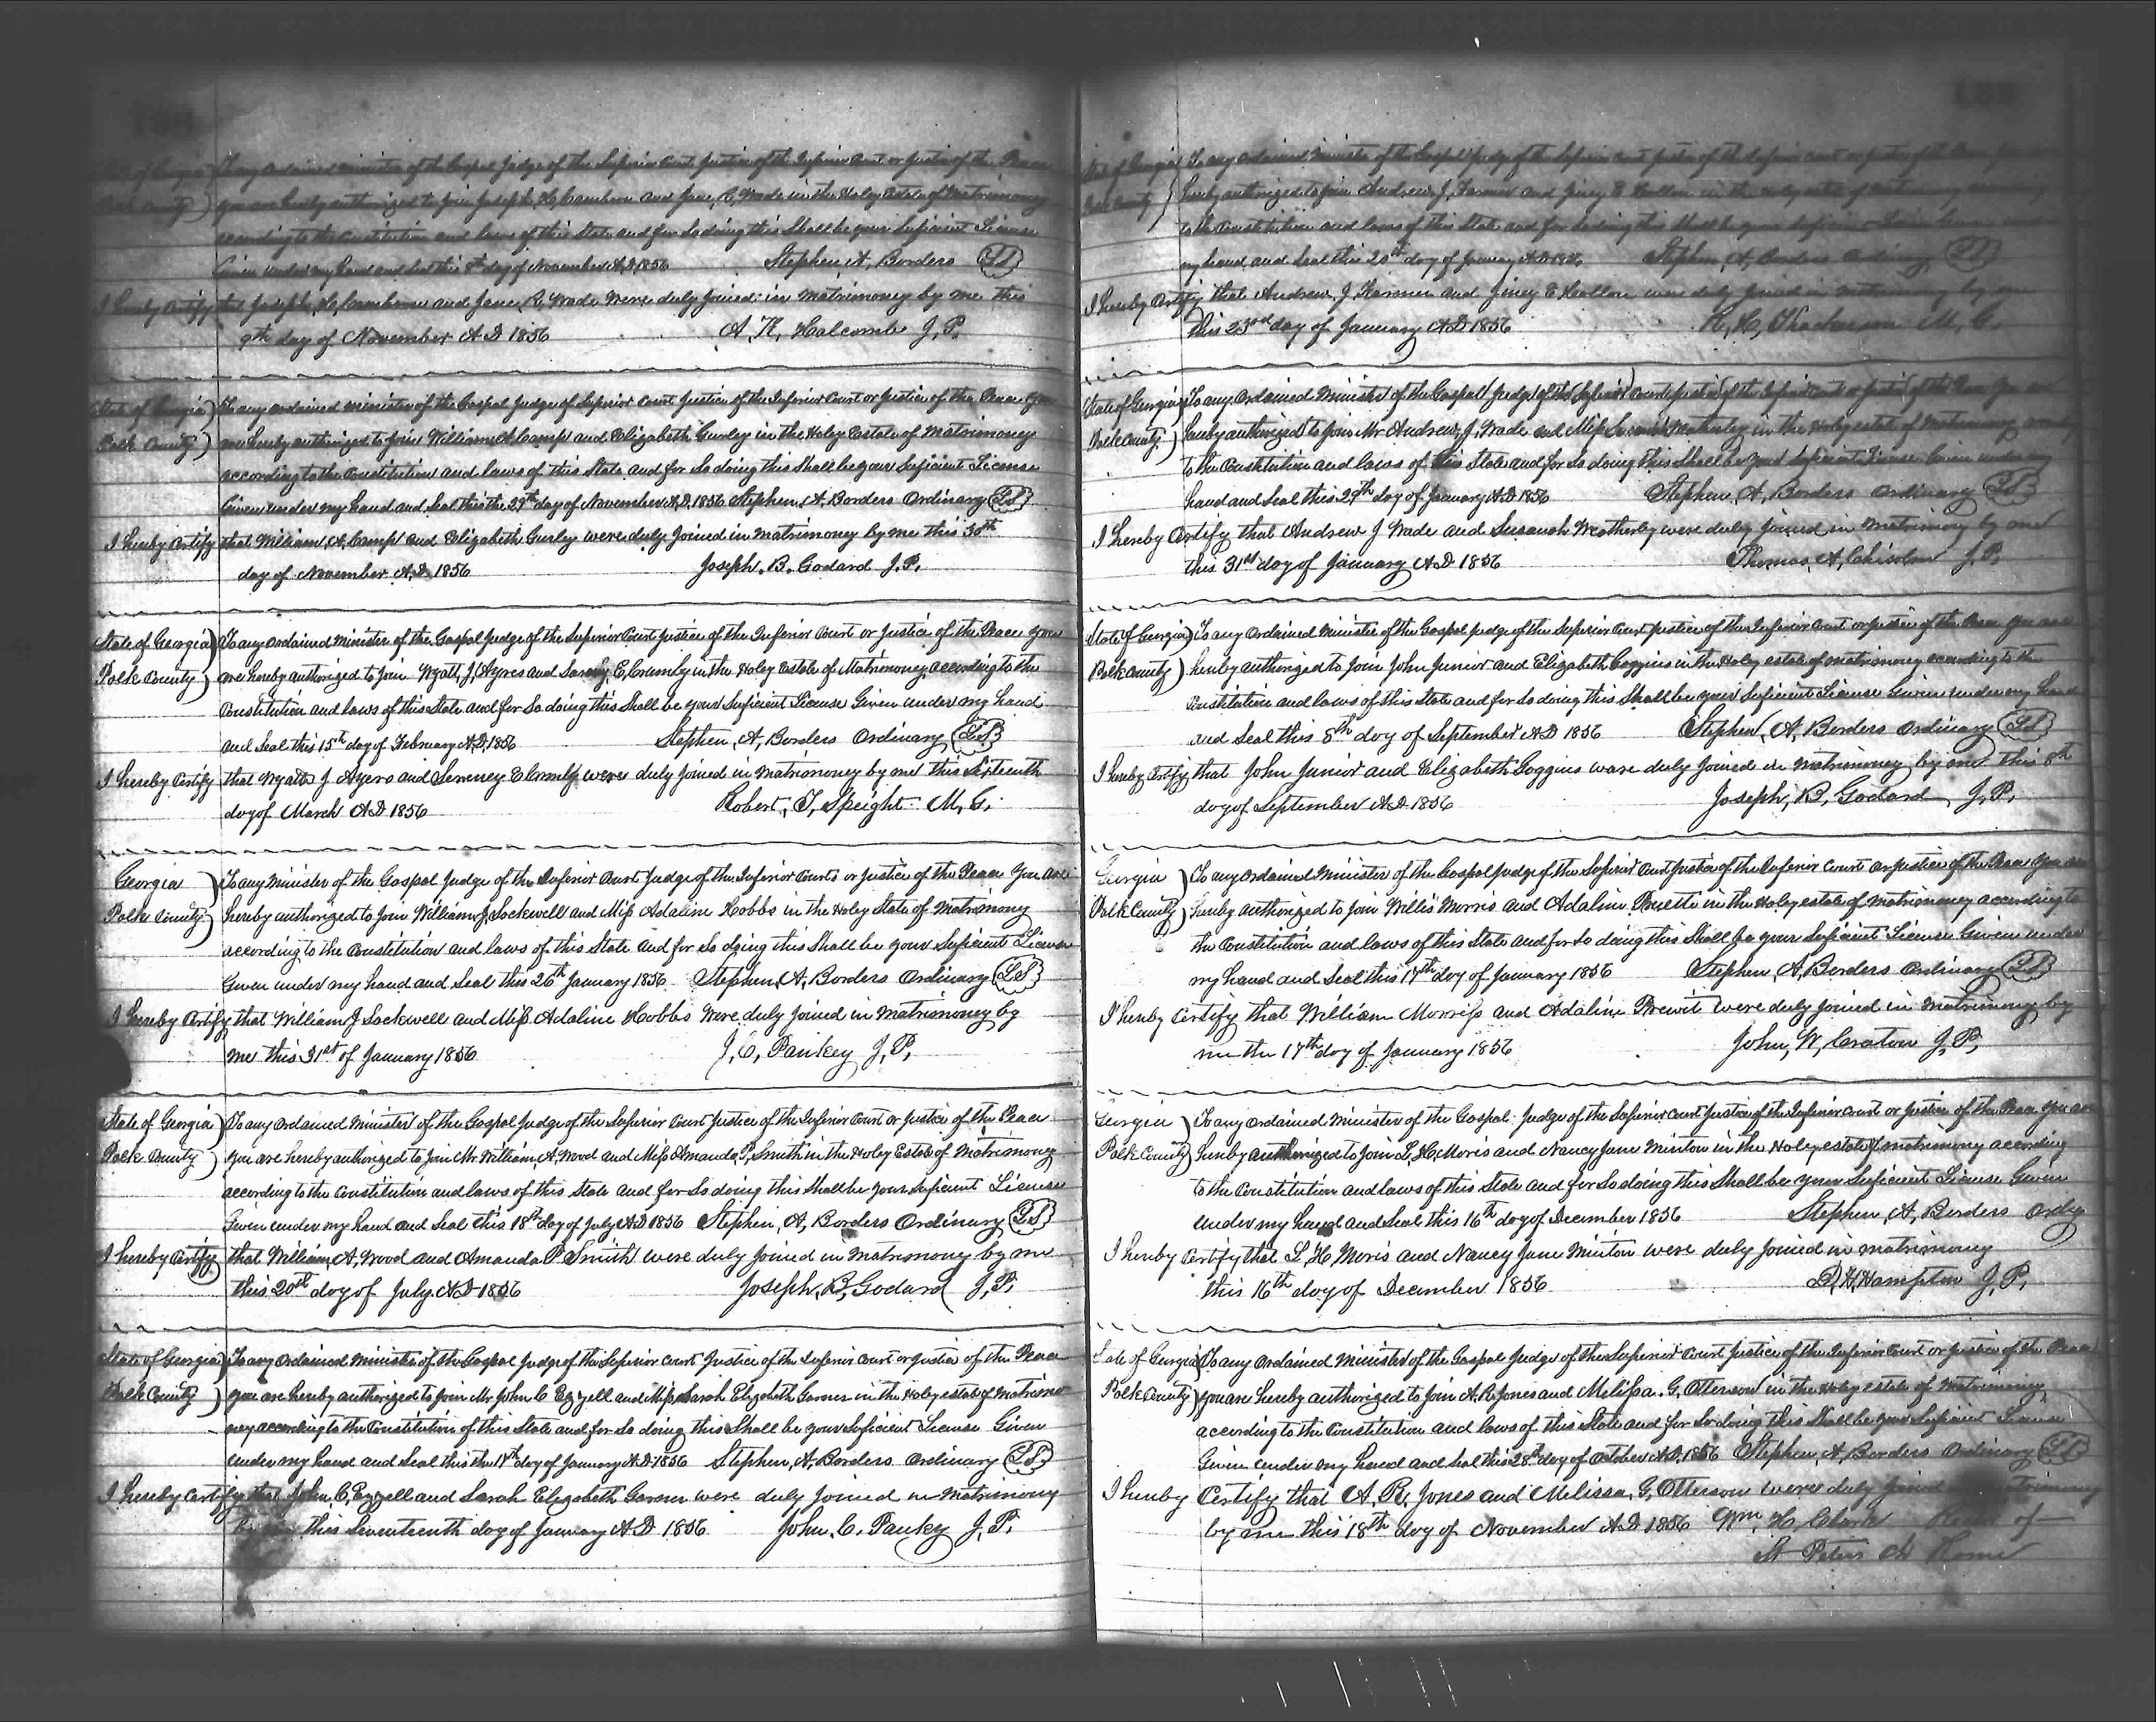 State of Georgia) To any ordained minister of the Gospel Judge of the Superior Court Justice of the Inferior Court or Justice of the Peace
Polk County) you are hereby authorized to join Joseph, H, Cambron and Jane, R, Wade in the Holey Estate of Matrimoney
according to the Constitution and laws of this State and for So doing this Shall be your Suficient License
Given under my hand and Seal this 8th day of November A.D. 1856 Stephen A, Borders LS
I hereby Certify that Joseph, H, and Jane, R, Wade Were duly joined in Matrimoney by me this
9th day of November A.D 1856 A. H, Halcomb J, P,
State of Georgia) To any ordained minister of the Gospel Judge of Superior Court Justice of the Inferior Court or Justice of the Peace you
Polk County) are hereby authorized to join William, A, Camp and Elizabeth Gurley in the Holey Estate of Matrimoney
according to the Constitution and laws of this State and for So doing this Shall be your Suficient License
Given under my hand and Seal this the 29th day of November A.D, 1856 Stephen, A, Borders Ordinary LS
I hereby Certify that William, A, Camp and Elizabeth Gurley were duly joined in Matrimoney by me this 30th
day of November A,D, 1856 Joseph. B. Godard J. P.
State of Georgia) To any Ordained Minister of the Gospel Judge of the Superior Court Justice of the Inferior Court or Justice of the Peace you
Polk County) are hereby authorized to join Wyatt, J, Ayres and E, Crumly in the Holey Estate of Matrimoney, according to the
Constitution and laws of this State and for So doing this Shall be your Suficient License Given under my hand
and Seal this 15th day of February A,D, 1856 Stephen, A, Borders Ordinary LS
I hereby Certify that Wyatt J Ayers and E Crumly were duly joined in Matrimoney by me this Sixteenth
day of March A.D 1856 Robert, T, Speight M, G,
Georgia) To any Minister of the Gospel Judge of the Superior Court Judge of the Inferior Courts or Justice of the Peace You are
Polk County) hereby authorized to join William, J, Sockwell and Miss Adaline Hobbs in the Holey State of Matrimony
according to the Constitution and laws of this State and for So doing this Shall be your Suficient License
Given under my hand and Seal this 26th January 1856 Stephen, A, Borders Ordinary LS
I hereby Certify that William J Sockwell and Miss Adaline Hobbs Were duly joined in Matrimoney by
me this 31st of January 1856 J, C, Paukey J, P,
State of Georgia) To any Ordained Minister of the Gospel Judge of the Superior Court Justice of the Inferior Court or Justice of the Peace
Polk County) you are hereby authorized to join Mr William, A, Wood and Miss Amanda, P, Smith in the Holey Estate of Matrimoney
according to the Constitution and laws of this State and for So doing this Shall be your Suficient License
Given under my hand and Seal this 18th day of July A,D 1856 Stephen, A, Borders Ordinary LS
I hereby Certify that William, A, Wood and Amanda P Smith were duly joined in Matrimoney by me
this 20th day of July A.D 1856 Joseph, B, Godard J, P,
State of Georgia) To any Ordained Minister of the Gospel Judge of the Superior Court Justice of the Inferior Court or Justice of the Peace
Polk County) you are hereby authorized to join Mr John C Ezzell and Miss Sarah Elizabeth Garner in the Holey estate of Matrimo
ney according to the Constitution of this State and for So doing this Shall be your Suficient License Given
under my hand and Seal this the 17th day of January A.D 1856 Stephen, A, Borders Ordinary LS
I hereby Certify that John, C, Ezzell and Sarah Elizabeth Garner were duly joined in Matrimony
this Seventeenth day of January A.D 1856 John, C, Paukey J, P.
State of Georgia) To any ordained Minister of the Gospel Judge of the Superior Court Justice of the Inferior court or Justice of the Peace
Polk County) hereby authorized to join Andrew, J, Farmer and Jincy E in the
to the Constitution and laws of this State and for So doing this Shall be your Suficient License
my hand and Seal this 20th day of January A.D 1856 Stephen, A, Borders LS
I hereby Certify that Andrew, J, Farmer and Jincy E were duly joined in Matrimoney by
this 23rd day of January A.D 1856 M, G
State of Georgia) To any Ordained Minister of the Gospel Judge of the Superior Court Justice of the Inferior Court or Justice of the Peace You are
Polk County) hereby authorized to join Mr Andrew, J, Wade and Miss in the Holey estate of Matrimoney
to the Constitution and laws of this State and for So doing this Shall be your Suficient License Given under my
hand and Seal this 29th day of January A.D 1856 Stephen, A, Borders Ordinary LS
I hereby Certify that Andrew J Wade and Susanah Weatherby were duly joined in Matrimony by me
this 31st day of January A.D 1856 Thomas, A, Chisolm J, P,
State of Georgia) To any Ordained Minister of the Gospel Judge of the Superior Court Justice of the Inferior Court or Justice of the Peace You are
Polk County) hereby authorized to join John Junior and Elizabeth Goggins in the Holey estate of matrimoney according to the
Constitution and laws of this State and for So doing this Shall be your Suficient License Given under my hand
and Seal this 8th day of September A.D 1856 Stephen, A, Borders Ordinary LS
I hereby Certify that John Junior and Elizabeth Goggins ware duly joined in Matrimoney by me this 8th
day of September A.D 1856 Joseph, B, Godard, J, P,
Georgia) To any Ordained Minister of the Gospel Judge of the Superior Court Justice of the Inferior Court or Justice of the Peace You are
Polk County) hereby authorized to join Willis Morris and Adaline Pruett in the Holey estate of Matrimoney according to
the Constitution and laws of this State and for So doing this Shall be your Suficient License Given under
my hand and Seal this 17th day of January 1856 Stephen, A, Borders Ordinary LS
I hereby Certify that William Morriss and Adaline Prewit were duly joined in Matrimoney by
me the 17th day of January 1856 John, W, Craton J, P,
Georgia) To any Ordained Minister of the Gospel Judge of the Superior Court Justice of the Inferior Court or Justice of the Peace You are
Polk County) hereby authorized to join L, H, Moris and Nancy Jane Minton in the Holey estate of matrimony according
to the Constitution and laws of this State and for So doing this Shall be your Suficient License Given
under my hand and Seal this 16th day of December 1856 Stephen, A, Borders Ordy
I hereby Certify that L, H, Moris and Nancy Jane Minton were duly joined in matrimony
this 16th day of December 1856 D, H, Hampton J, P,
State of Georgia) To any Ordained Minister of the Gospel Judge of the Superior Court Justice of the Inferior Court or Justice of the Peace
Polk County) you are hereby authorized to join A. R. Jones and Melissa. G, Otterson in the Holey estate of Matrimoney
according to the Constitution and laws of this State and for So doing this Shall be your Suficient License
Given under my hand and Seal this 28th day of October A.D, 1856 Stephen, A, Borders Ordinary LS
I hereby Certify that A. R, Jones and Melissa, G, Otterson were duly joined Matrimony
by me this 18th day of November A.D 1856 Wm, H, Clark of
St Peters Ch Rome